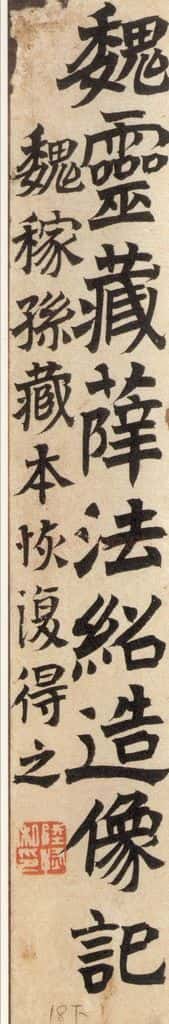 魏靈藏薛法紹造像記
魏稼孫藏本恢復得之
18下